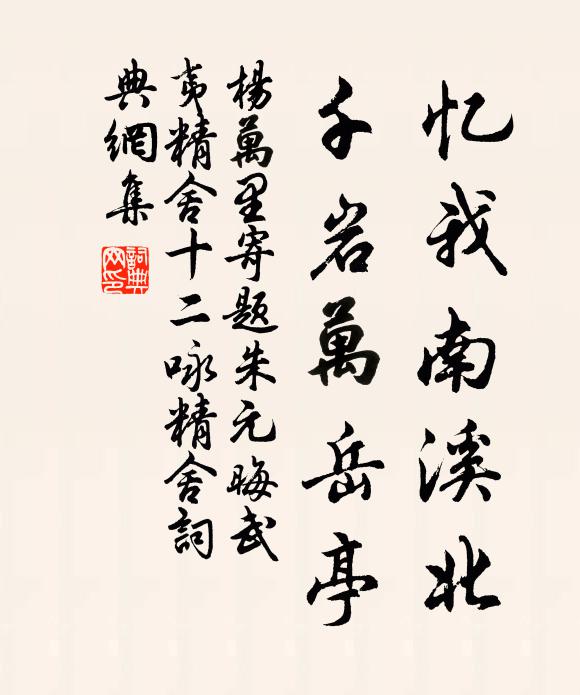 忆我南溪北
千岩萬岳亭
楊萬里寄题朱元晦武
夷精舍十二咏精舍詞
典網集
詞典网印